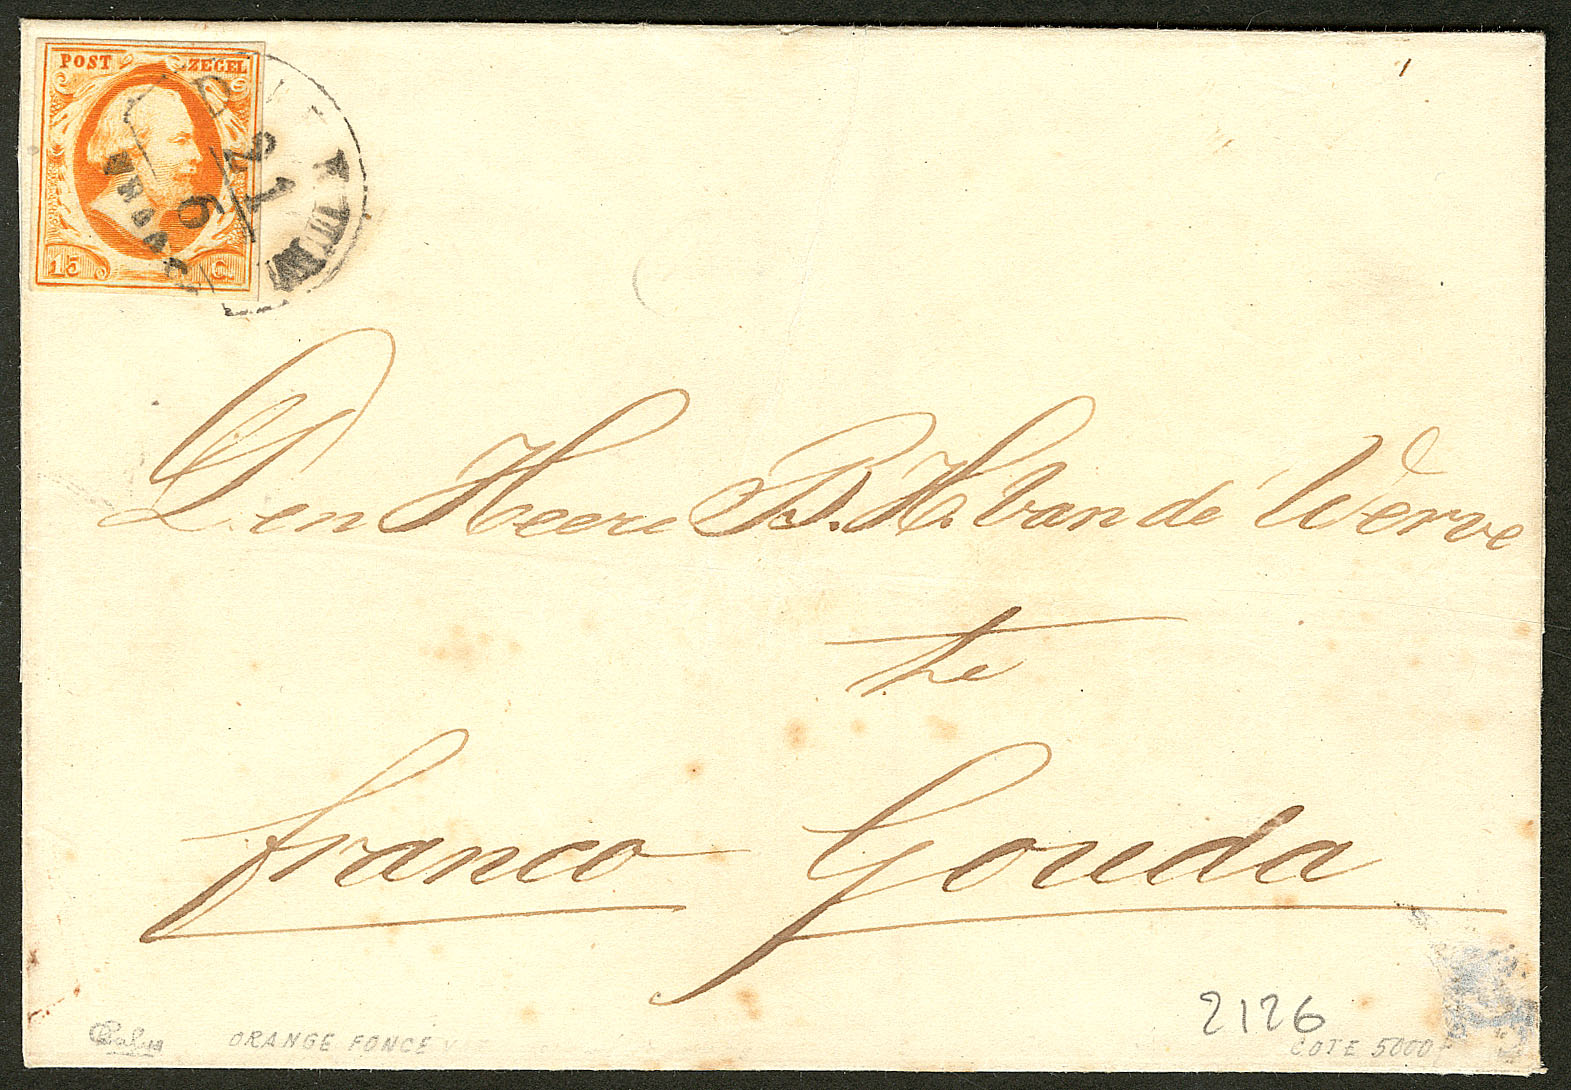 POST ZEGEL
15 C.
21
6
Den Heere B. H. van de Werve
te
franco Gouda
2126
ORANGE FONCÉ
COTE 5000F